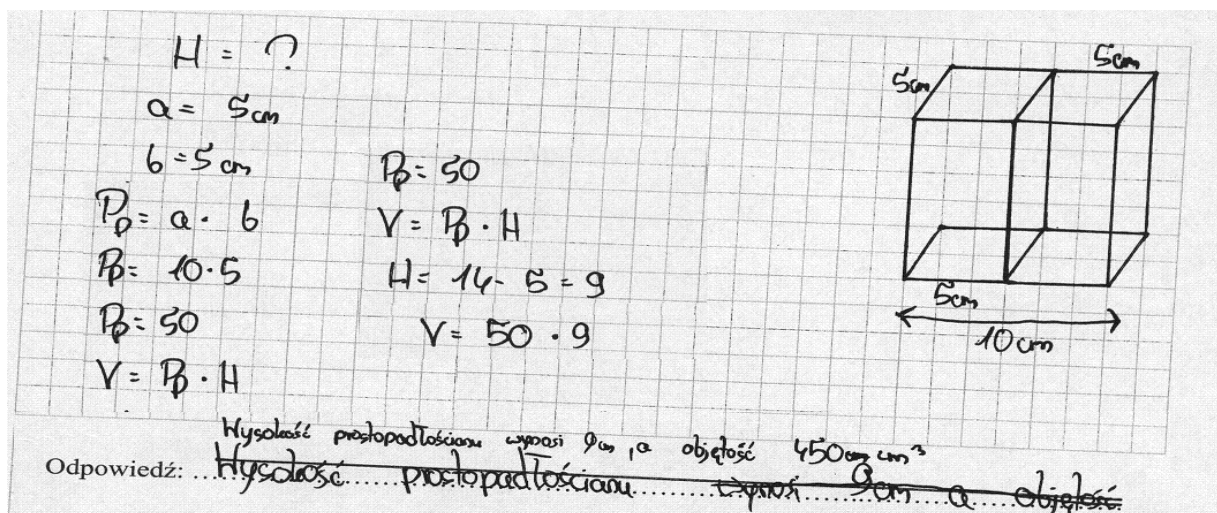 H = ?
a = 5 cm
b = 5 cm
Pp = a · b
Pp = 10 · 5
Pp = 50
V = Pp · H
Pp = 50
V = Pp · H
H = 14 - 5 = 9
V = 50 · 9
5cm
5cm
5cm
10 cm
Wysokość prostopadłościanu wynosi 9 cm , a objętość 450 cm cm³
Odpowiedź: Wysokość prostopadłościanu wynosi 9cm a objętość